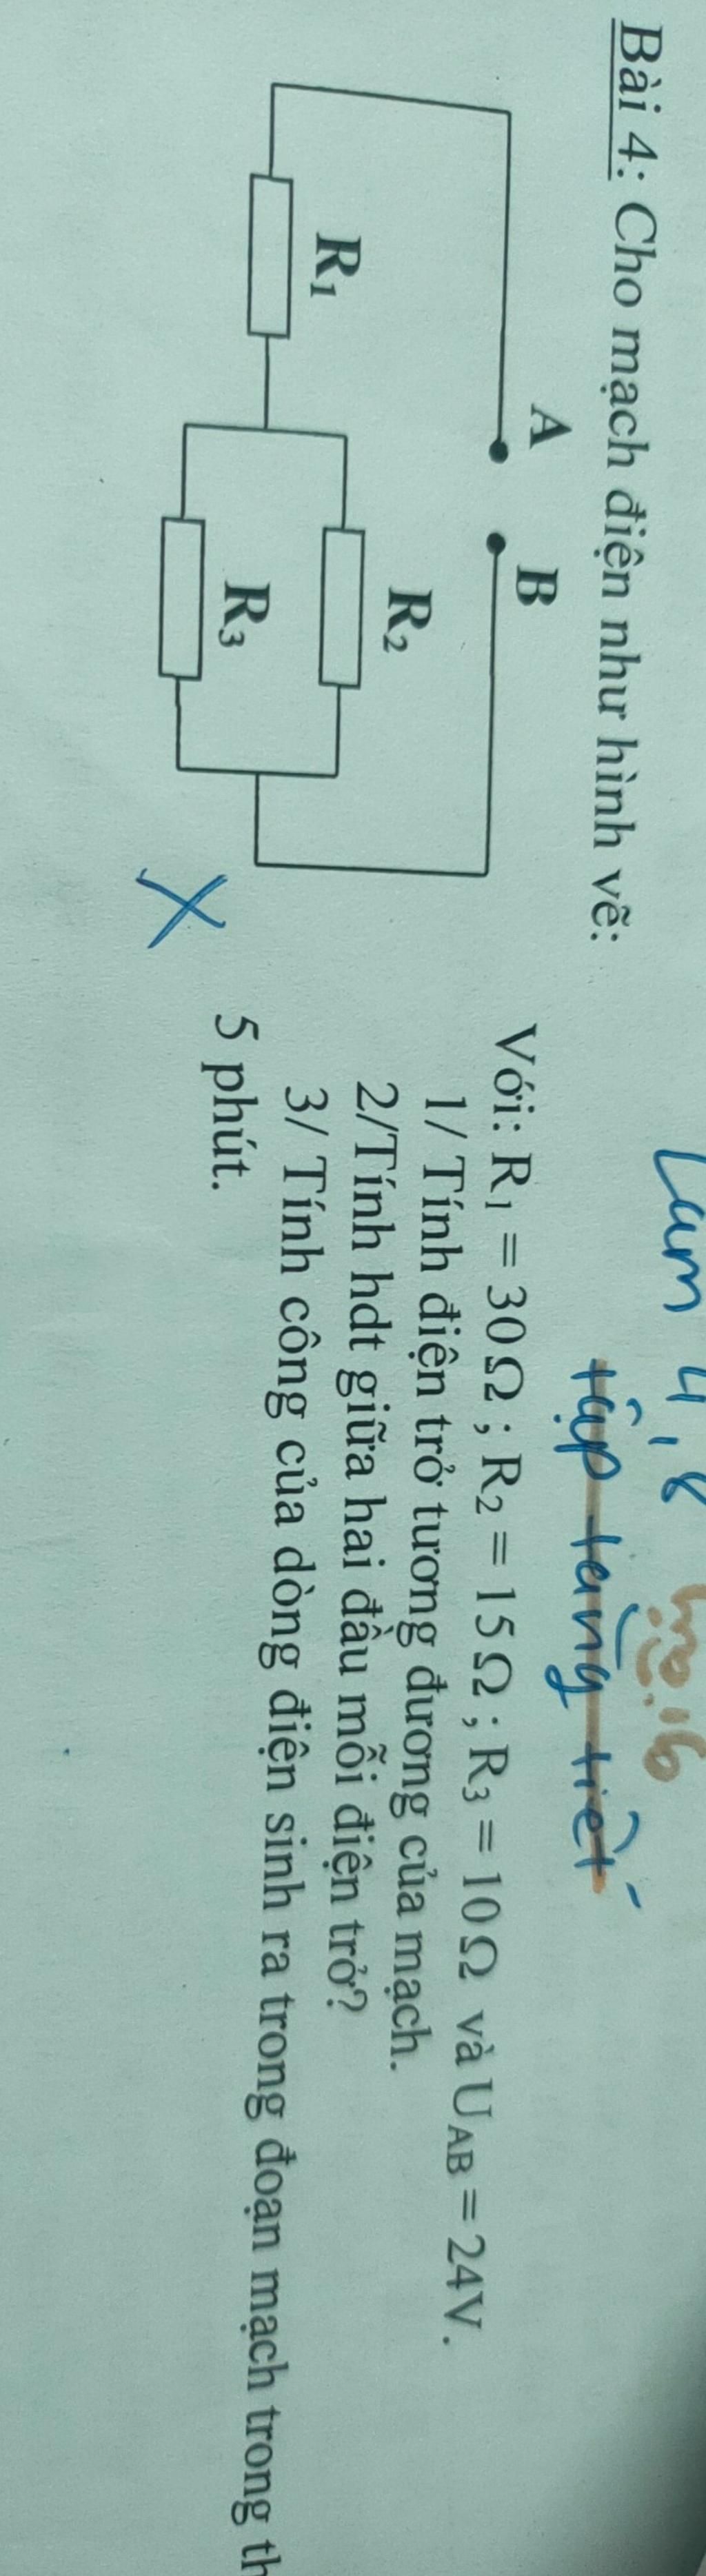 Làm 4, 8
tập tầng tiết
Bài 4: Cho mạch điện như hình vẽ:
A
B
R₁
R₂
R₃
Với: R₁ = 30Ω ; R₂ = 15Ω ; R₃ = 10Ω và U_AB = 24V.
1/ Tính điện trở tương đương của mạch.
2/Tính hdt giữa hai đầu mỗi điện trở?
3/ Tính công của dòng điện sinh ra trong đoạn mạch trong th
5 phút.